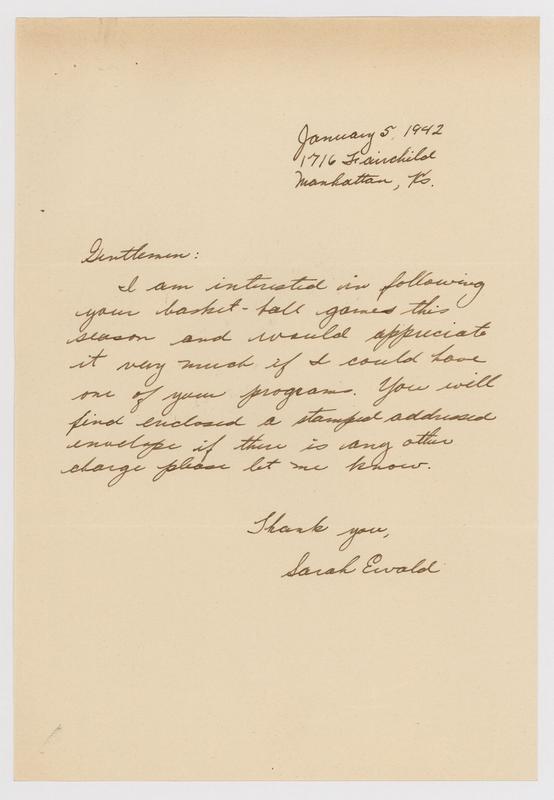 January 5, 1942
1716 Fairchild
Manhattan, Ks.
Gentlemen:
I am interested in following
your basket-ball games this
season and would appreciate
it very much if I could have
one of your programs. You will
find enclosed a stamped addressed
envelope if there is any other
charge please let me know.
Thank you,
Sarah Ewald